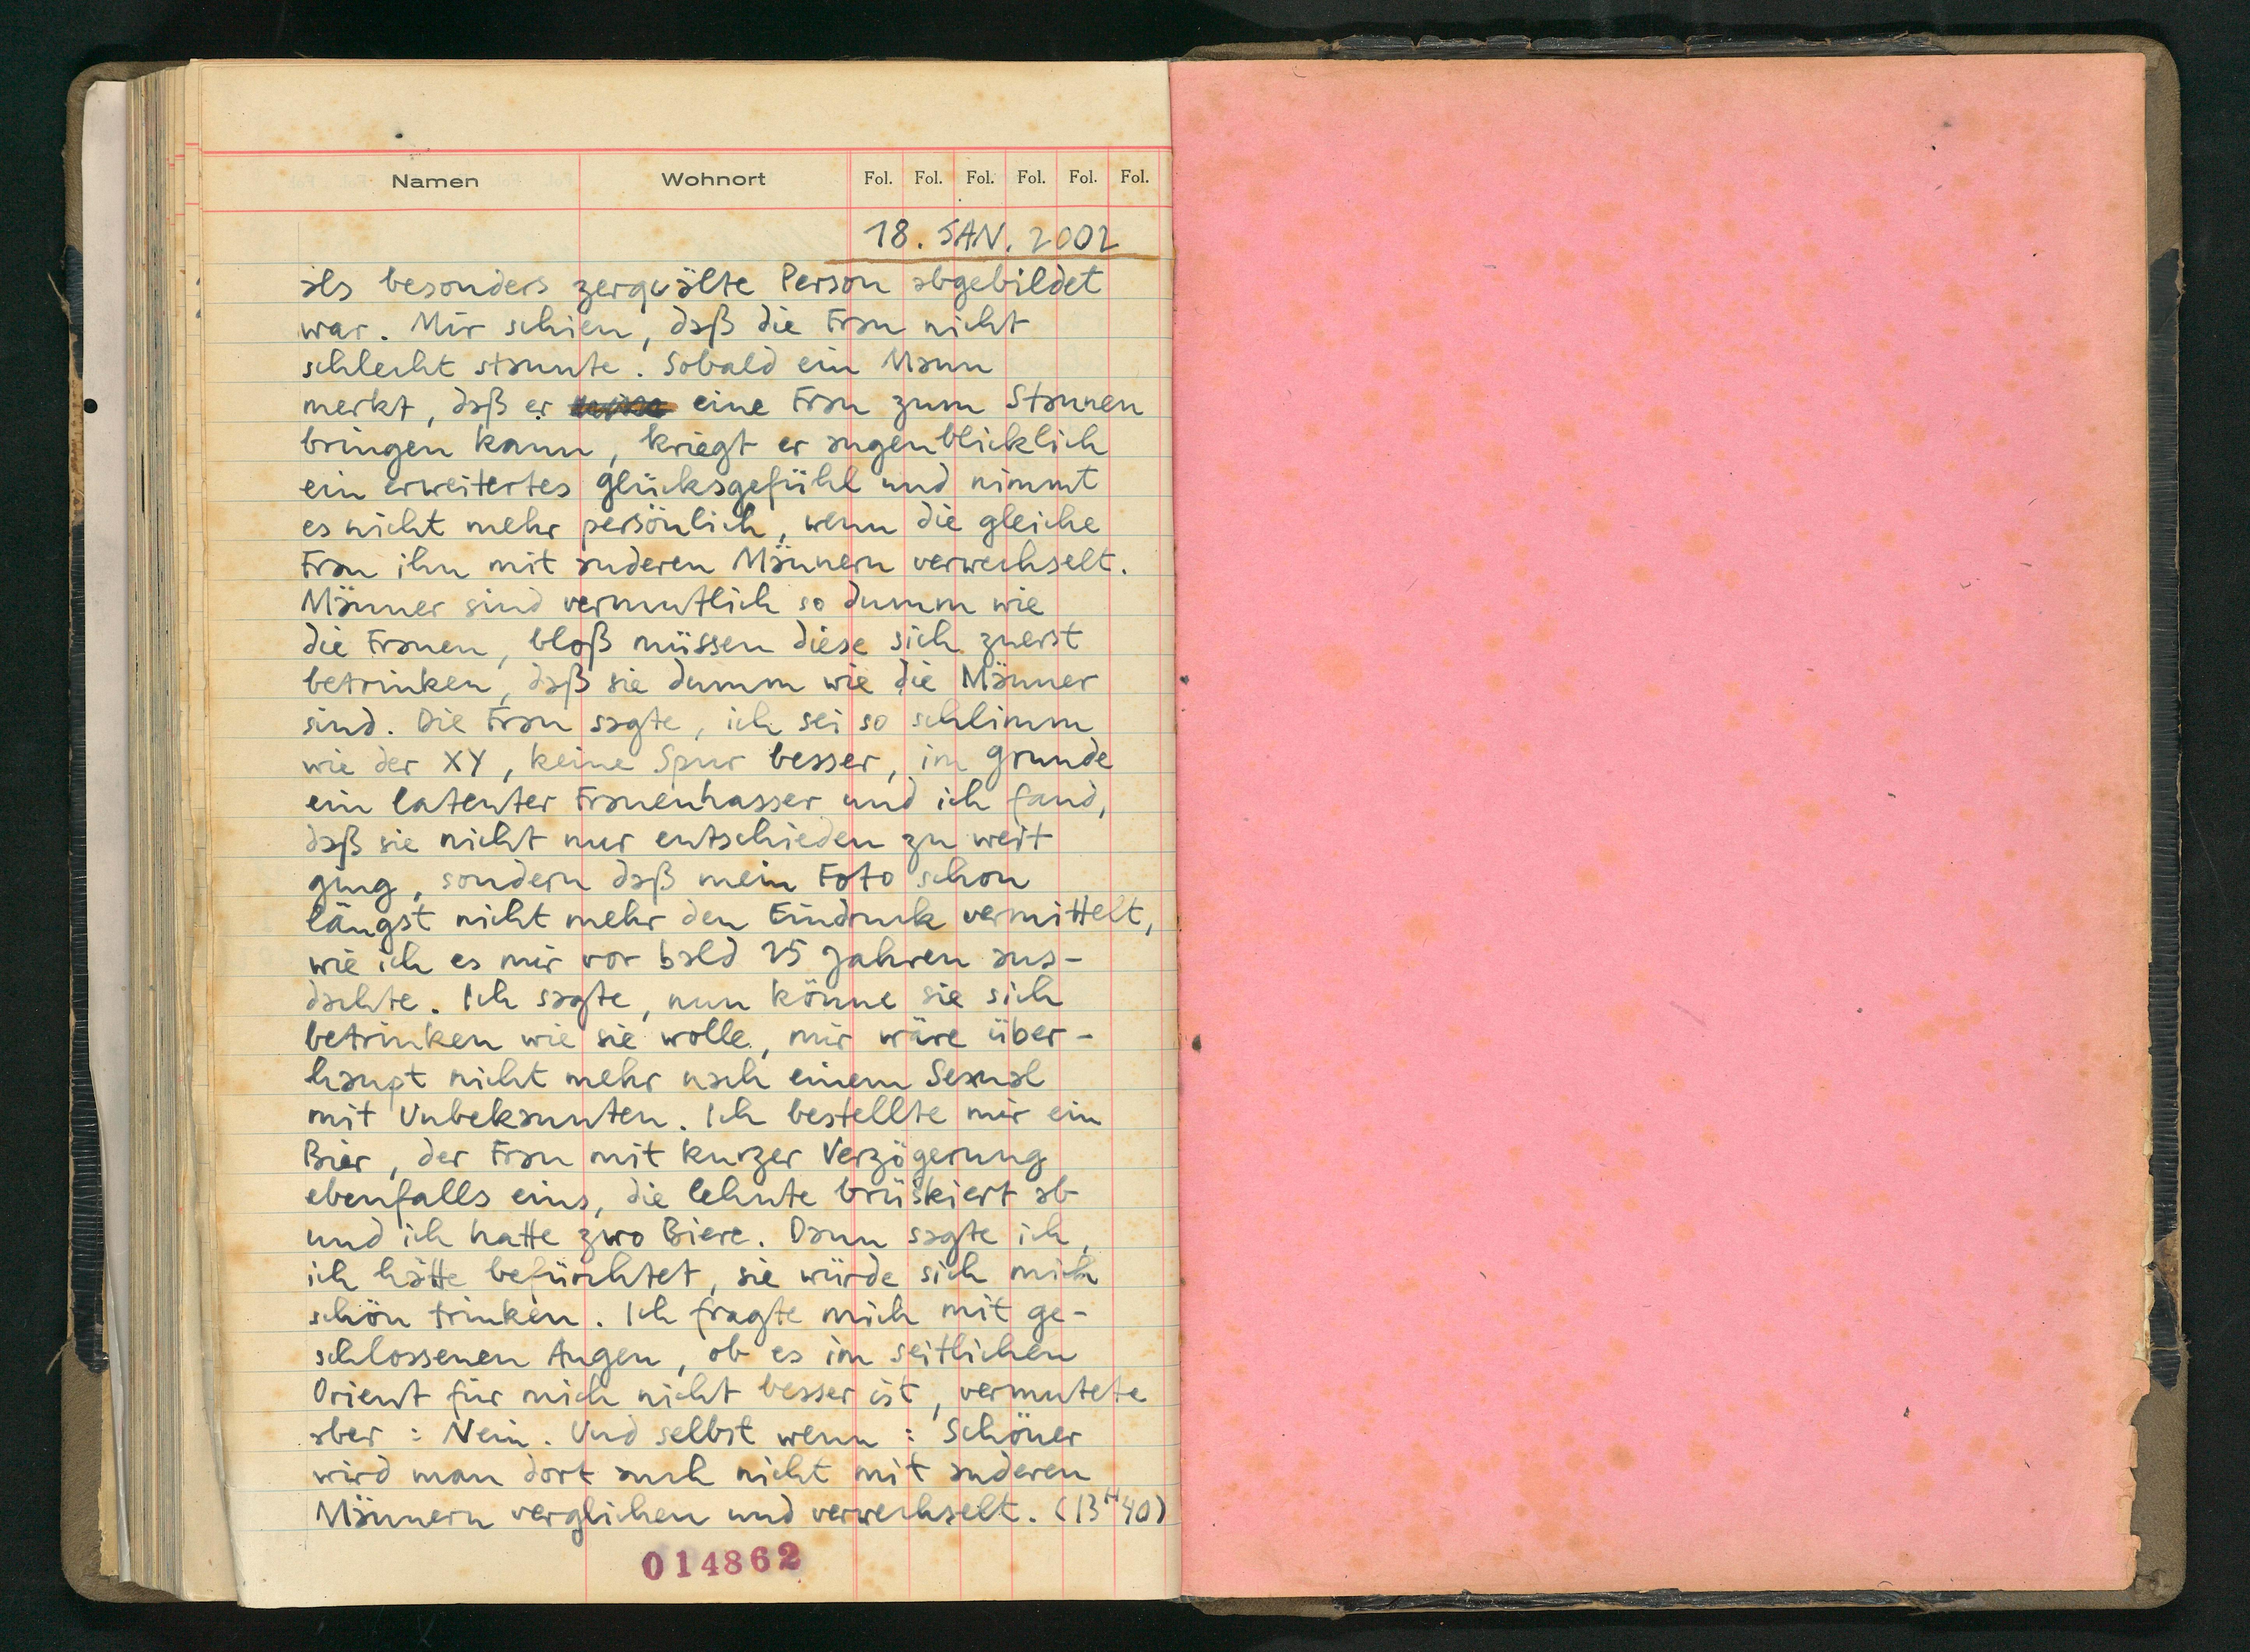 Namen Wohnort Fol. Fol. Fol. Fol. Fol. Fol.
18. JAN. 2002
als besonders zerquälte Person abgebildet
war. Mir schien, daß die Frau nicht
schlecht staunte. Sobald ein Mann
merkt, daß er eine Frau zum Staunen
bringen kann, kriegt er augenblicklich
ein erweitertes Glücksgefühl und nimmt
es nicht mehr persönlich, wenn die gleiche
Frau ihn mit anderen Männern verwechselt.
Männer sind vermutlich so dumm wie
die Frauen, bloß müssen diese sich zuerst
betrinken, daß sie dumm wie die Männer
sind. Die Frau sagte, ich sei so schlimm
wie der XY, keine Spur besser, im Grunde
ein latenter Frauenhasser und ich fand,
daß sie nicht nur entschieden zu weit
ging, sondern daß mein Foto schon
längst nicht mehr den Eindruck vermittelt,
wie ich es mir vor bald 25 Jahren aus-
dachte. Ich sagte, nun könne sie sich
betrinken wie sie wolle, mir wäre über-
haupt nicht mehr nach einem Sexual
mit Unbekannten. Ich bestellte mir ein
Bier, der Frau mit kurzer Verzögerung
ebenfalls eins, die lehnte brüskiert ab
und ich hatte zwo Biere. Dann sagte ich,
ich hätte befürchtet, sie würde sich mich
schön trinken. Ich fragte mich mit ge-
schlossenen Augen, ob es im seitlichen
Orient für mich nicht besser ist, vermutete
aber : Nein. Und selbst wenn : Schöner
wird man dort auch nicht mit anderen
Männern verglichen und verwechselt. (13H40)
014862